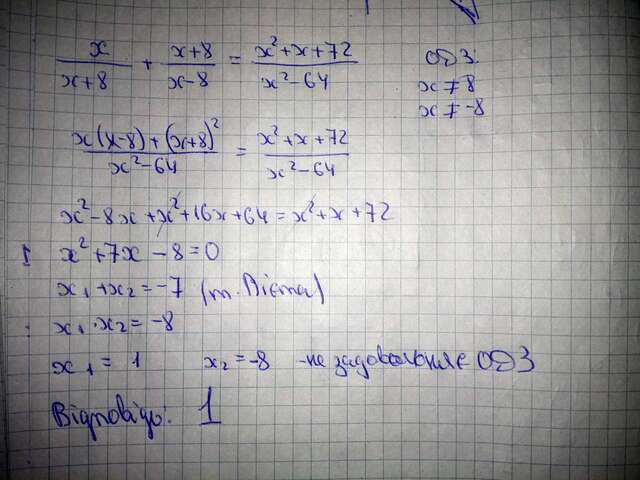 x/(x+8) + (x+8)/(x-8) = (x²+x+72)/(x²-64) ОДЗ:
x ≠ 8
x ≠ -8
(x(x-8)+(x+8)²)/(x²-64) = (x²+x+72)/(x²-64)
x²-8x+x²+16x+64=x²+x+72
x²+7x-8=0
x₁+x₂=-7 (т. Вієта)
x₁·x₂=-8
x₁=1 x₂=-8 -не задовольняє ОДЗ
Відповідь: 1